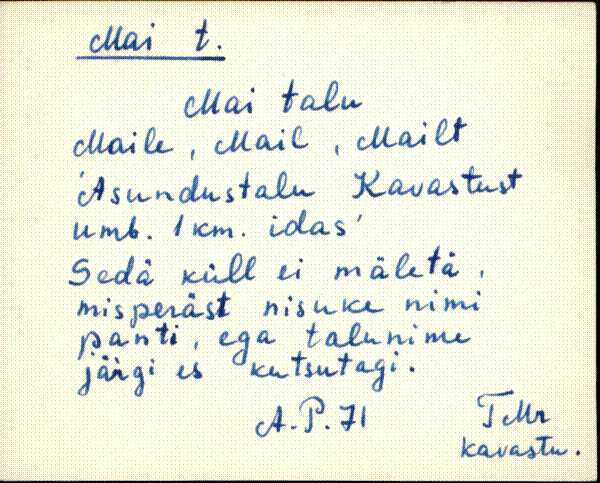 Mai t.
Mai talu
Maile, Mail, Mailt
'Asundustalu Kavastust
umb. 1 km. idas'
Sedä küll ei mäletä,
misperäst nisuke nimi
panti, ega talunime
järgi es kutsutagi.
A.P. 71 TMr
Kavastu.